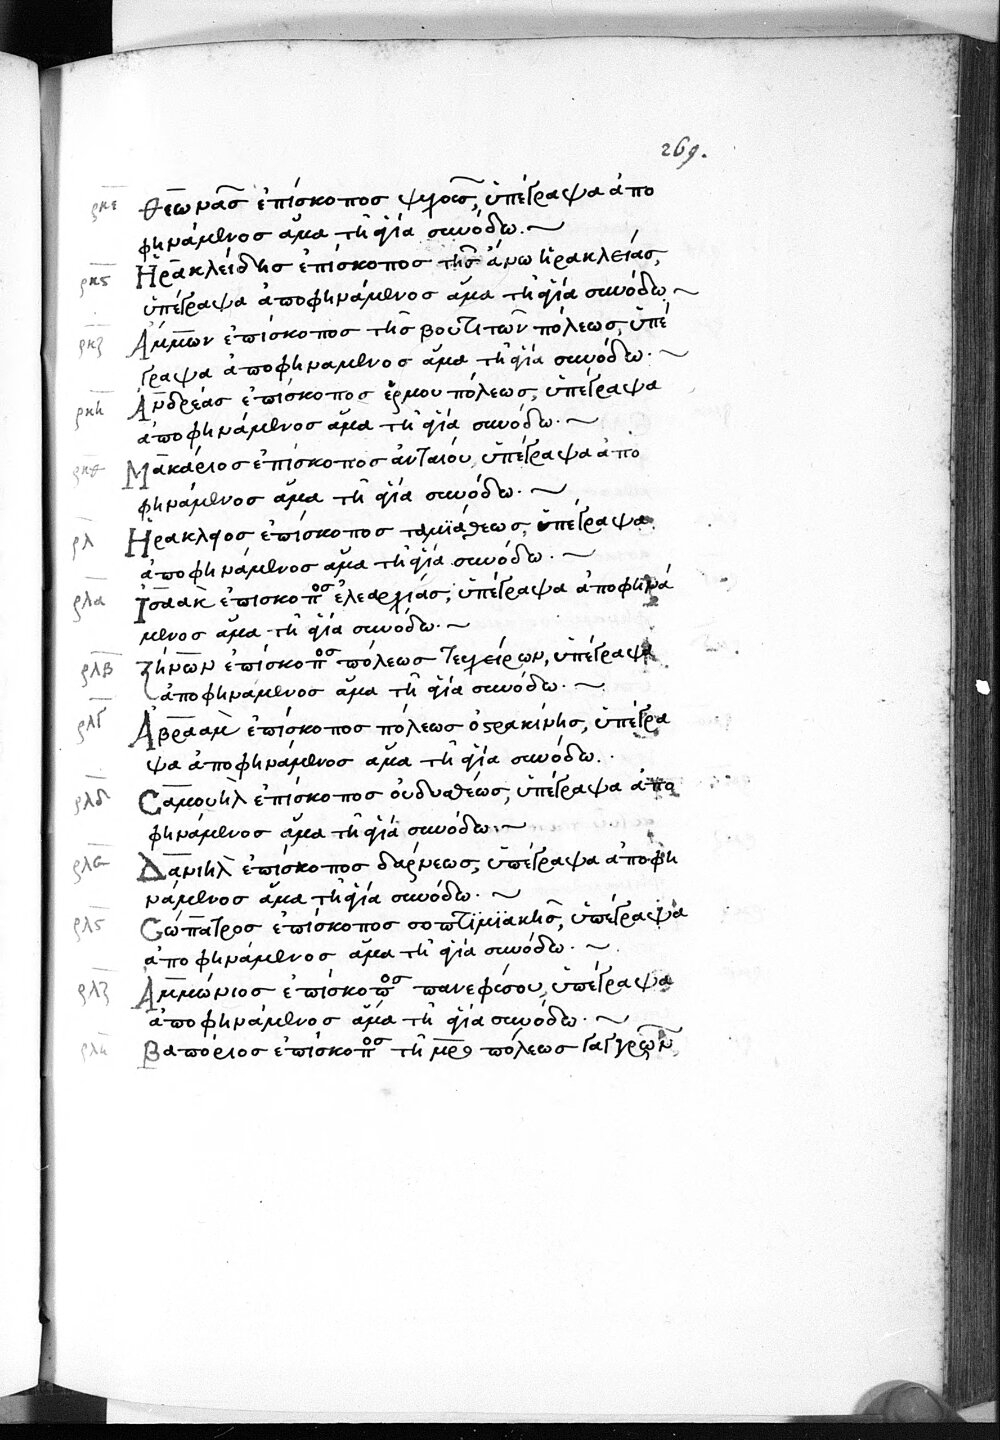 269.
ρκε Θεωνᾶς ἐπίσκοπος ψιγοῦς, ὑπέγραψα ἀπο
φηνάμενος ἅμα τῆ ἁγία συνόδω.
ρκϛ Ἡρακλείδης ἐπίσκοπος τῆς ἄνω ἡρακλείας,
ὑπέγραψα ἀποφηνάμενος ἅμα τῆ ἁγία συνόδω
ρκζ Ἄμμων ἐπίσκοπος τῆς βουτιτῶν πόλεως, ὑπέ
γραψα ἀποφηναμενος ἅμα τῆ ἁγία συνόδω.
ρκη Ἀνδρέας ἐπίσκοπος ἑρμουπόλεως, ὑπέγραψα
ἀποφηνάμενος ἅμα τῆ ἁγία συνόδω.
ρκθ Μακάριος ἐπίσκοπος ἀνταιόυ, ὑπέγραψα ἀπο
φηνάμενος ἅμα τῆ ἁγία συνόδω.
ρλ Ἡρακλῃος ἐπίσκοπος ταμϊάθεως, ὑπέγραψα
ἀποφηνάμενος ἅμα τῆ ἁγία συνόδω.
ρλα Ἰσαὰκ ἐπισκοπος ἐλεαρχίας, ὑπέγραψα ἀποφηνά
μενος ἅμα τῆ ἁγία συνόδω.
ρλβ Ζήνων ἐπίσκοπος πόλεως τευχείρων, ὑπέγραψα
ἀποφηνάμενος ἅμα τῆ ἁγία συνόδω.
ρλγ Ἀβραὰμ ἐπίσκοπος πόλεως ὀστρακίνης, ὑπέγρα
ψα ἀποφηνάμενος ἅμα τῆ ἁγία συνόδω.
ρλδ Σαμουὴλ ἐπίσκοπος ὀυδυαθέως, ὑπέγραψα ἀπο
φηνάμενος ἅμα τῆ ἁγία συνόδω.
ρλε Δανιὴλ ἐπίσκοπος δαρνεως, ὑπέγραψα ἀποφη
νάμενος ἅμα τῆ ἁγία συνόδω.
ρλϛ Σώπατρος ἐπίσκοπος σοπτϊμϊακῆς, ὑπέγραψα
ἀποφηνάμενος ἅμα τῆ ἁγία συνόδω.
ρλζ Ἀμμώνιος ἐπίσκοπος πανεφέσου, ὑπέγραψα
ἀποφηνάμενος ἅμα τῆ ἁγία συνόδω.
ρλη Βαπόριος ἐπίσκοπος τῆ μρο πόλεως γαγγρῶν